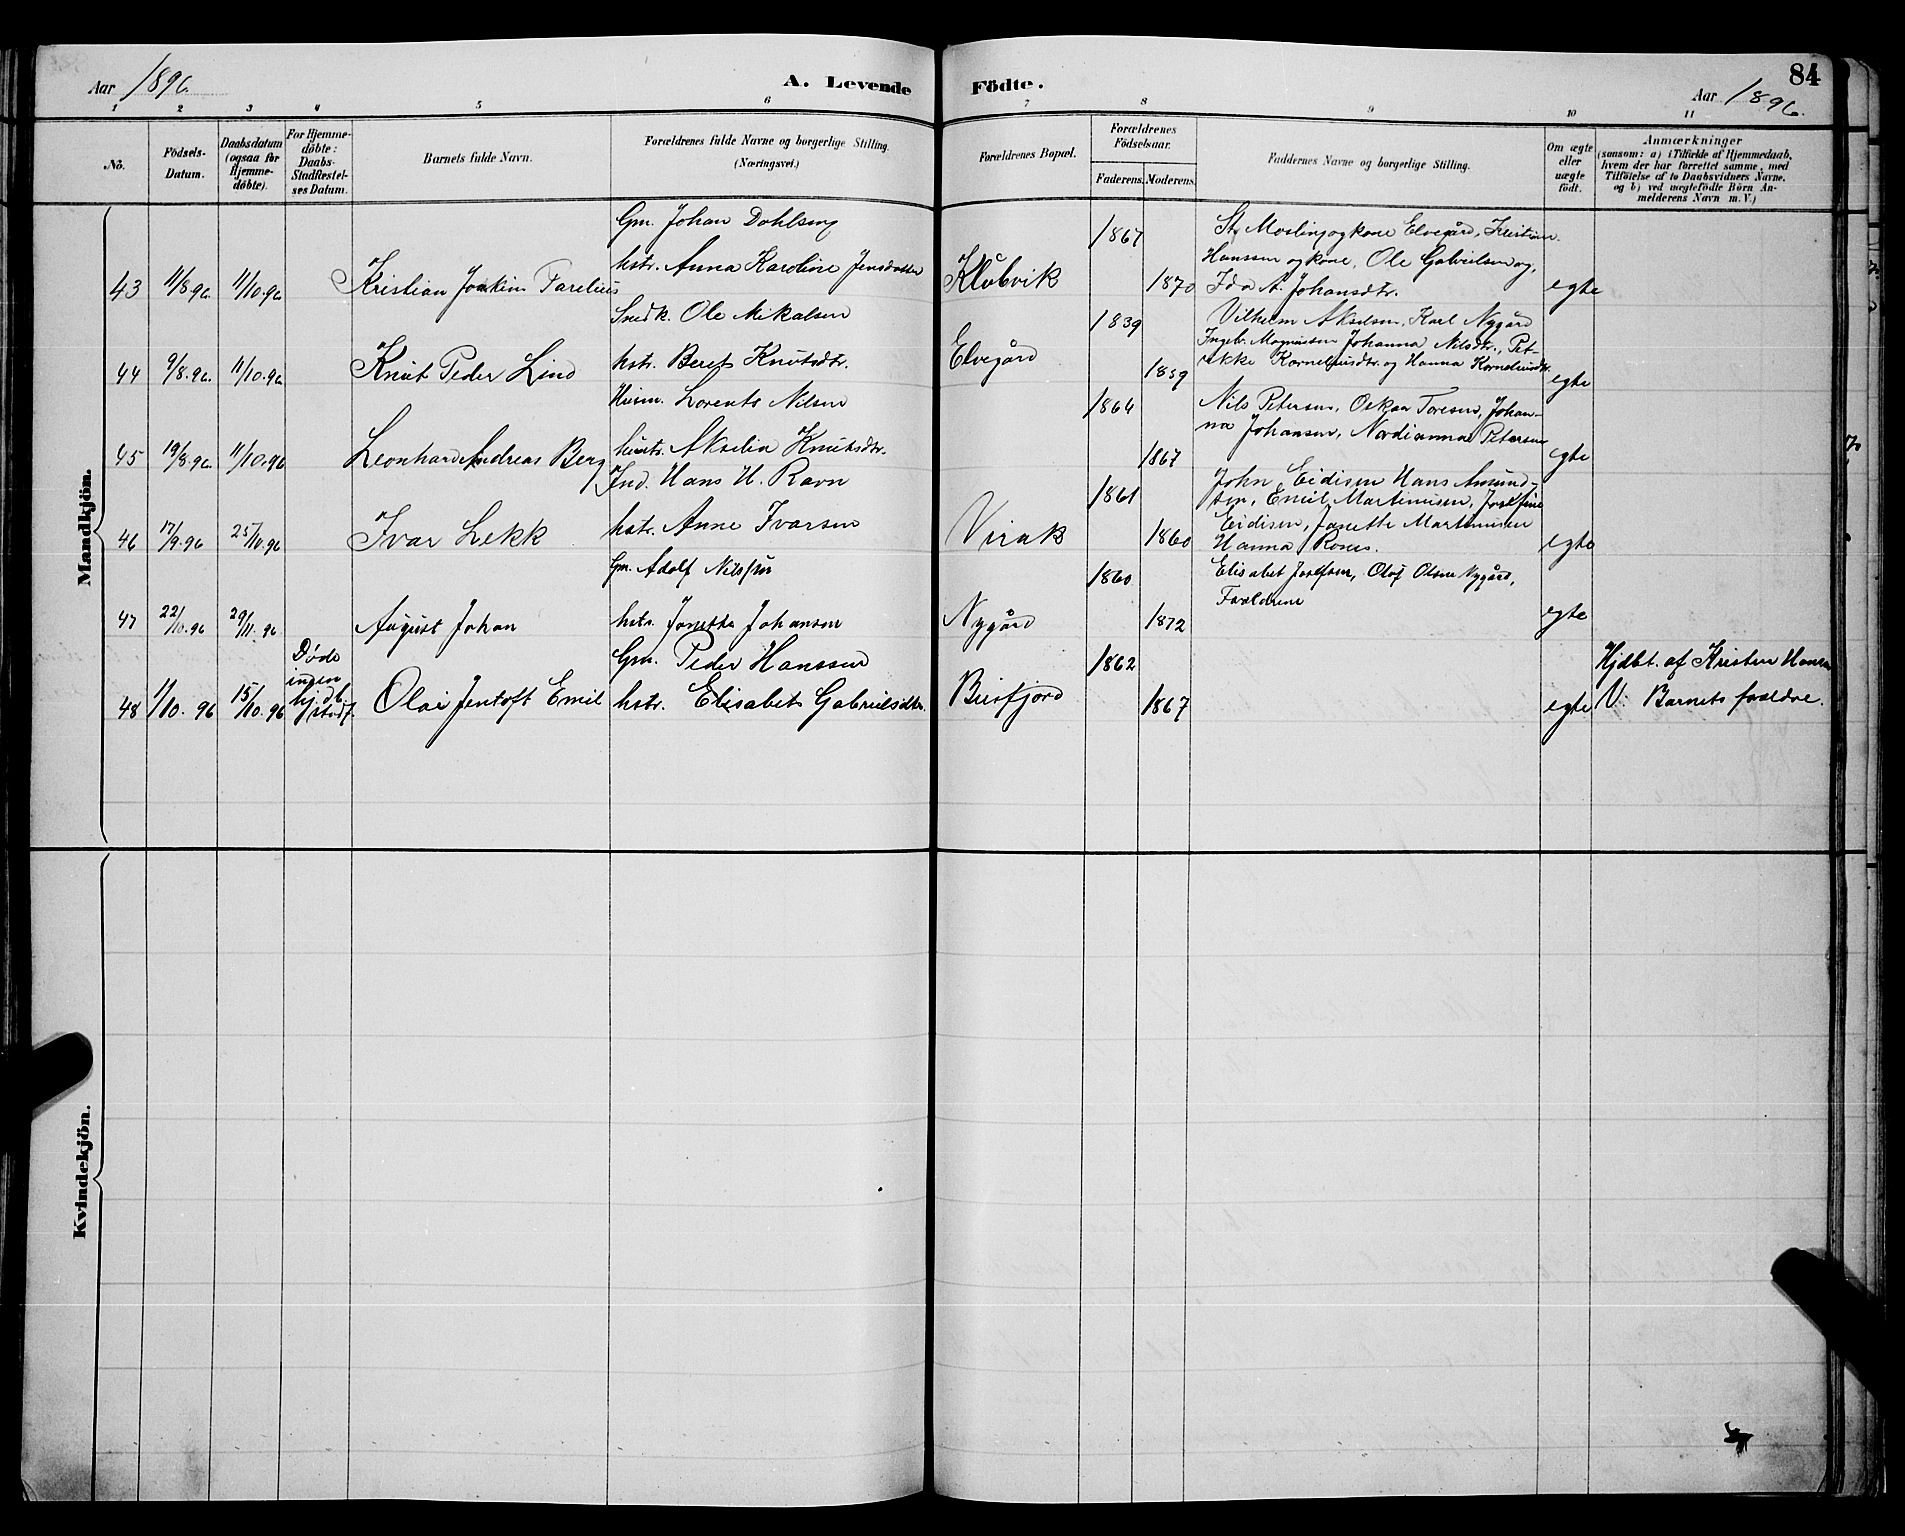 Aar 1896.
A. Levende Födte.
Aar 1896.
84
1 2 3 4 5 6 7 8 9 10 11
No.
Födsels-Datum.
Daabsdatum (ogsaa for Hjemme-döbte).
For Hjemme-döbte: Daabs-Stadfæstel-ses Datum.
Barnets fulde Navn.
Forældrenes fulde Navne og borgerlige Stilling.
(Næringsvei.)
Forældrenes Bopæl.
Forældrenes Födselsaar.
Faderens. Moderens.
Faddernes Navne og borgerlige Stilling.
Om ægte eller uægte födt.
Anmærkninger
(saasom: a) i Tilfælde af Hjemmedaab,
hvem der har forrettet samme, med
Tilföielse af to Daabsvidners Navne,
og b) ved uægtefödte Börn An-
melderens Navn m.V.)
Mandkjön.
Gm. Johan Dahlseng
hstr. Anna Karoline Jensdatter
43 11/8.96. 11/10.96 Kristian Joakim Parelius
Klubvik 1867 1870
Moslingogkone Elvegård, Kristian
Hanssen og kone, Ole Gabrielsen og,
Ida A. Johansdtr. egte
Snedk. Ole Mikalsen
44 9/8.96. 11/10.96 Knut Peder Lind hstr. Berit Knutsdtr.
Elvegård 1839 1859
Vilhelm Akselsen, Karl Nygård
Ingeb. Magnussen Johanna Nilsdtr., Pet-
rikke Korneliusdtr. og Hanna Korneliusdtr. egte
Husm. Lorents Nilsen
45 19/8.96. 11/10.96 Leonhard Andreas Berg hustr. Akselia Knutsdtr.
1864 1867
Nils Petersen, Oskar Toresen, Johan-
na Johansen, Nordianna Petersen egte
Ind. Hans H. Ravn
46 17/9.96 25/10.96 Ivar Lekk hstr. Anne Ivarsen
Virak 1861 1860
John Eidisen Hans Amund-
sen, Emil Martinusen, Josefine
Eidisen, Janette Martinusen
Hanna Roses. egte
Gm. Adolf Nilssen
47 22/10.96 29/11.96 August Johan hstr. Jonetta Johansen
Nygård 1860 1872
Elisabet Josefsen, Olof Olsen Nygård,
Forældrene egte
Gm. Peder Hanssen
48 1/10.96 15/10.96 Døde ingen hjdb. stadf. Olai Jentoft Emil hstr. Elisabet Gabrielsdtr.
Beisfjord 1862 1867 egte
Hjdbt. af Kristen Hansen
V: Barnets forældre.
Kvindekjön.